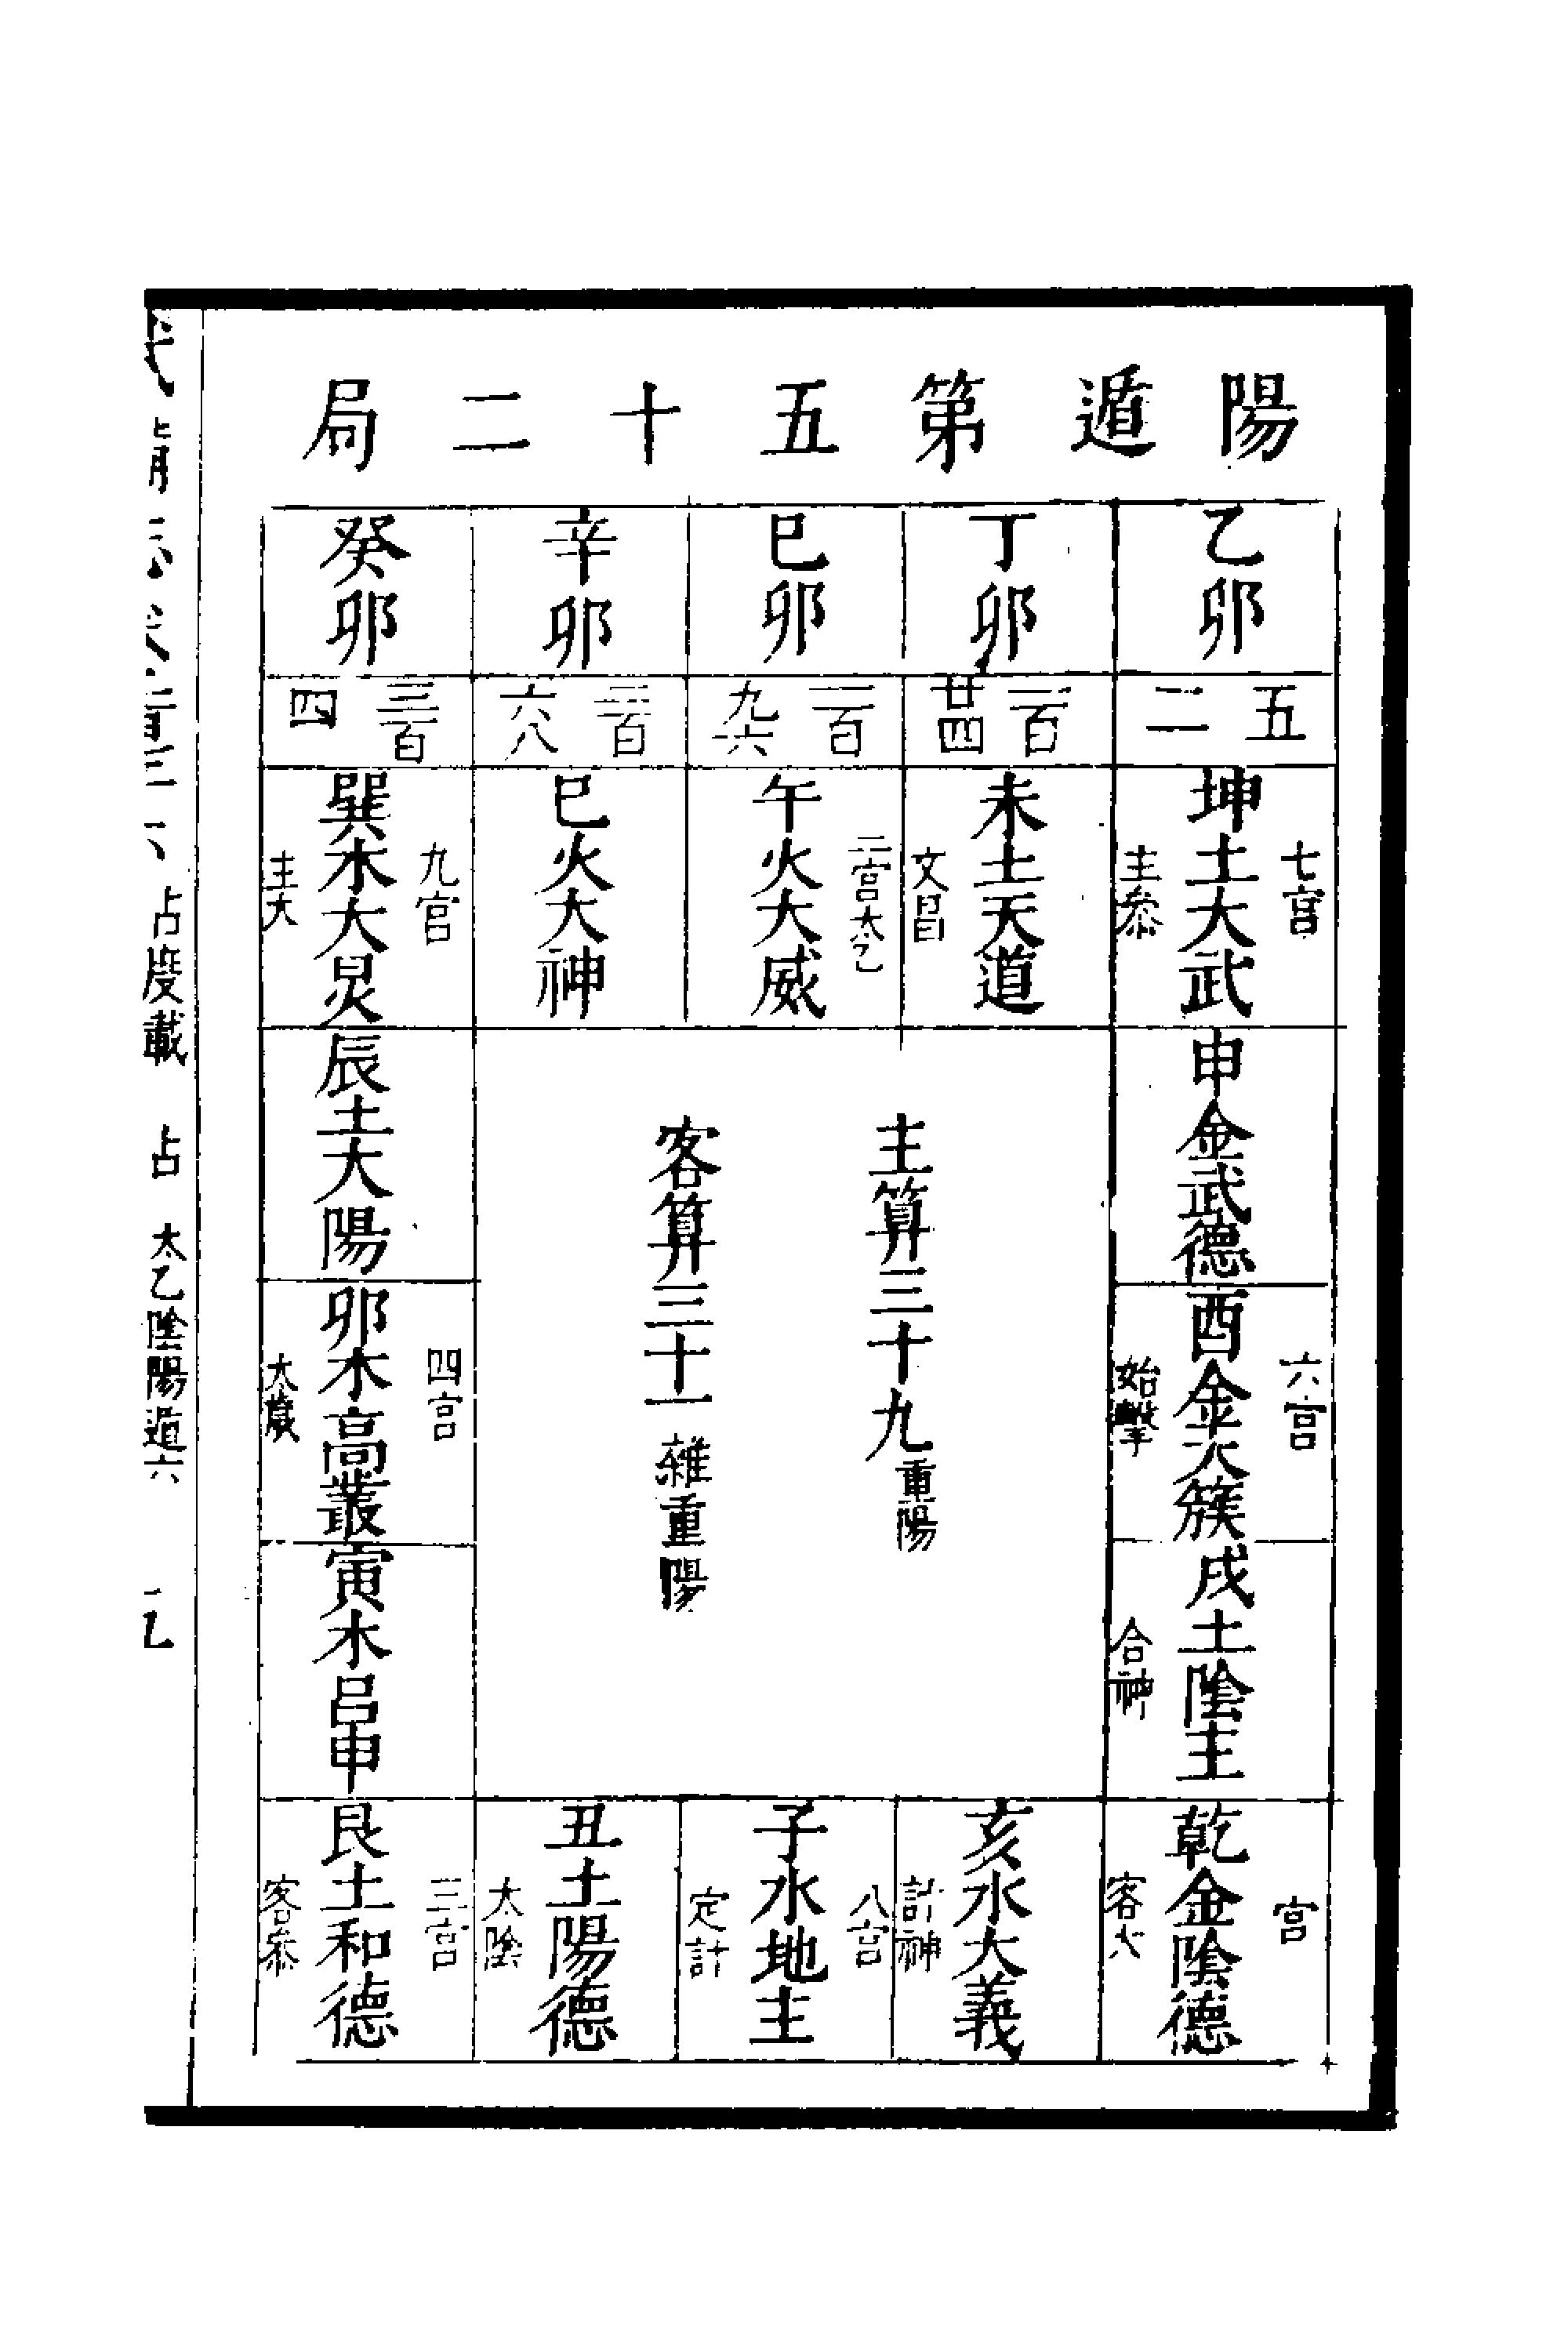 陽遁第五十二局
乙卯
丁卯
巳卯
辛卯
癸卯
五二
一百廿四
一百九六
二百六八
三百四
七宫
坤土大武
主叅
未土天道
文昌
二宫太乙
午火大威
巳火大神
九宫
巽木大炅
主大
申金武德
六宫
酉金大簇
始擊
戌土陰主
合神
宫
乾金陰德
客大
主算三十九重陽
客算三十一雜重陽
辰土大陽
四宫
卯木高叢
太歲
寅木吕申
亥水大義
計神
八宫
子水地主
定計
丑土陽德
太陰
三宫
艮土和德
客叅
占度載 占 太乙陰陽遁六